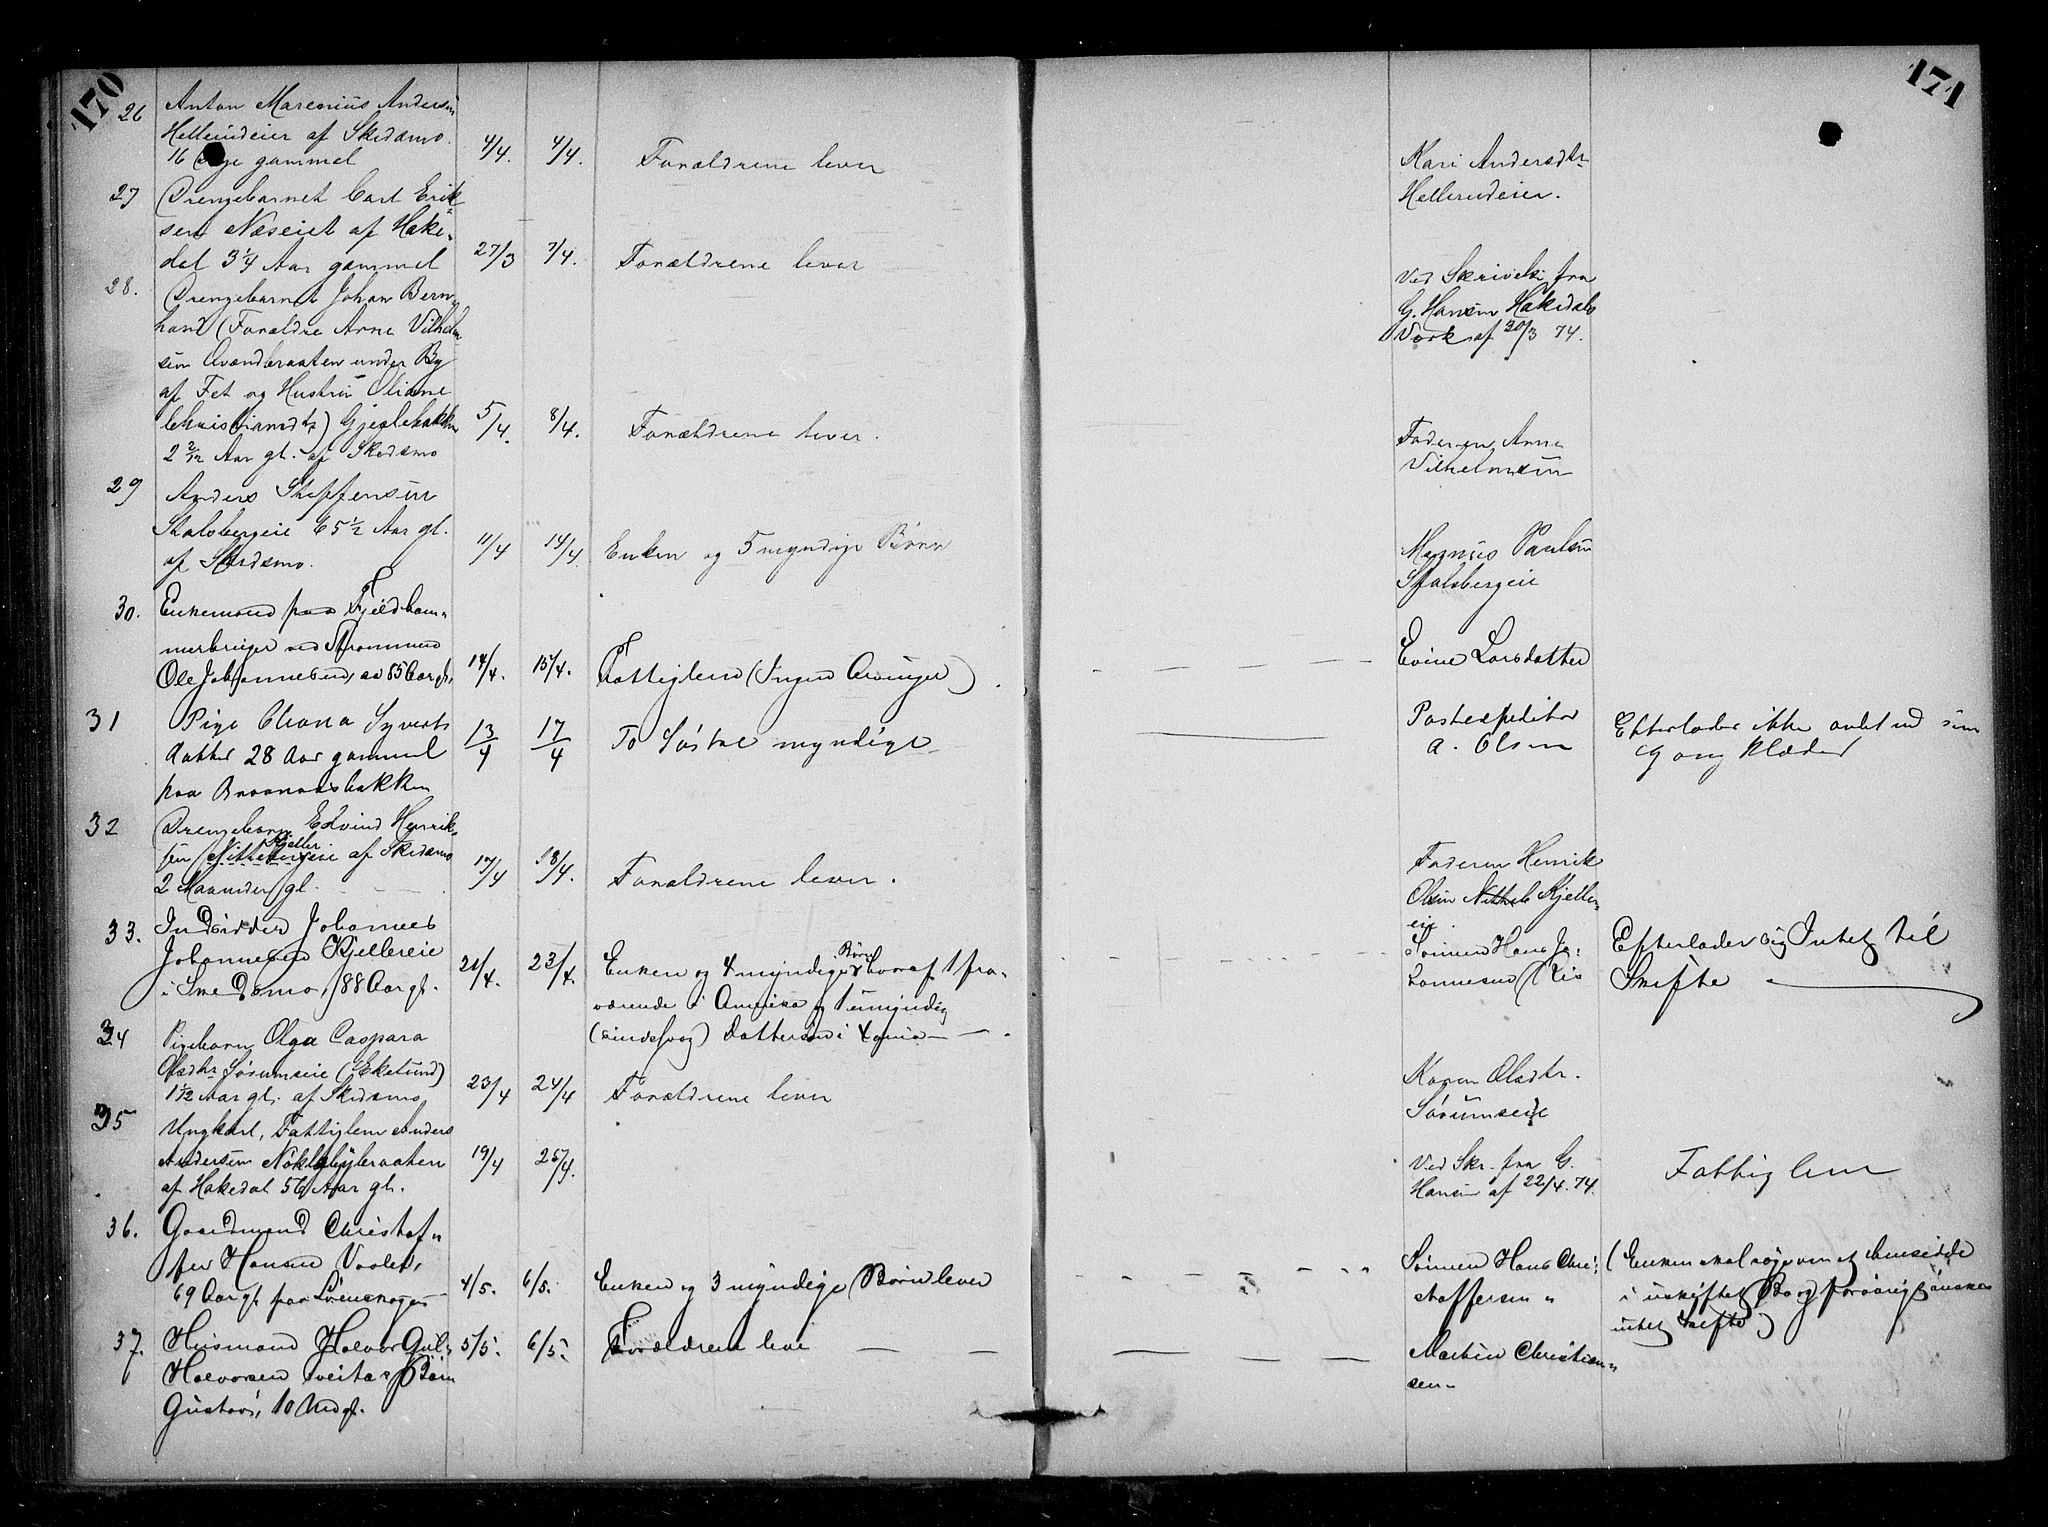 170
171
26 Anton Marenius Andersen
Helleiudeier af Skedsmo.
16 Dage gammel 4/4. 4/4. Forældrene lever Kari Andersdtr
Hellerudeier.
27 Drengebarnet Carl Erik-
sen Næseiet af Hake-
dal 3 1/4 Aar gammel 27/3 7/4. Forældrene lever Ved Skrivelse fra
G. Hansen Hakedals
Værk af 30/3 74.
28. Drengebarnet Johan Bern-
hard (Forældre Arne Vilhelm-
sen under By
af Fet og Hustru Oliane
Christiansdtr) Gjeglebakken
2 2/12 Aar gl. af Skedsmo 5/4. 8/4. Forældrene lever. Faderen Arne
Vilhelmsen
29 Anders Steffensen
Stalsbergeie 65 1/2 Aar gl.
af Skedsmo. 11/4 14/4. Enken og 5 myndige Børn Magnus Paulsen
Stalsbergeie
30. Enkemand paa Fjeldham-
merbruget ved Strømmen
Ole Johannesen, 85 Aar gl. 14/4. 15/4. Fattiglem (Ingen Arvinger) Evine Larsdatter
31 Pige Syverts
datter 28 Aar gammel
paa Braanaasbakken 13/4 17/4 To Søstre myndige Postexpeditør
A. Olsen Efterlader ikke andet end sine
Gang Klæder
32 Drengebarn Edvind Henrik-
sen Kjeller
Nittebergeie af Skedsmo
2 Maaneder gl. 17/4 18/4. Forældrene lever. Faderen Henrik
Olsen Kjeller-
eie.
33. Indsidder Johannes
Johannesen Kjellereie
i Skedsmo, 88 Aar gl. 21/4. 23/4. Enken og 4 myndige Børn hvoraf 1 fra-
værende i Amerika og 1 umyndig
(sindssvag) Datter Sønnen Hans Jo-
hannesen Ris Efterlader sig Intet til
Skifte
34 Pigebarn Olga Caspara
Olsdtr Sørumseie (Ekelund)
1 1/12 Aar gl. af Skedsmo 23/4 24/4 Forældrene lever Karen Olsdtr.
Sørumseie
35 Ungkarl, Fattiglem Anders
Andersen Nøklebybraaten
af Hakedal 56 Aar gl. 19/4 25/4. Ved Skr. fra G.
Hansen af 22/4. 74. Fattiglem
36. Gaardmand Christof-
fer Hansen
69 Aar gl. paa Lørenskogen 4/5. 6/5. Enken og 3 myndige Børn lever Sønnen Hans Chri-
stoffersen (Enken skal søge om at hensidde
i uskiftet Bo og forøvrigt ønskes
intet Skifte)
37. Husmand Halvor Gul-
Halvorsen Tveiter Barn
Gustav, 10 Md gl. 5/5. 6/5. Forældrene leve Martin Christian-
sen